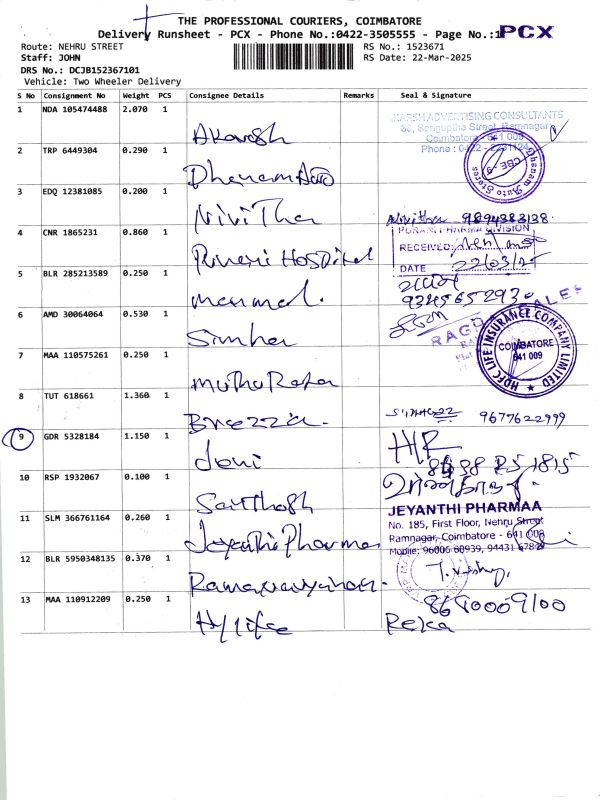 THE PROFESSIONAL COURIERS, COIMBATORE
Delivery Runsheet - PCX - Phone No.:0422-3505555 - Page No.:1
PCX
Route: NEHRU STREET
RS No.: 1523671
Staff: JOHN
RS Date: 22-Mar-2025
DRS No.: DCJB152367101
Vehicle: Two Wheeler Delivery
S No Consignment No Weight PCS Consignee Details Remarks Seal & Signature
1 NDA 105474488 2.070 1 Akarsh
AKARSH ADVERTISING CONSULTANTS
Street, Ramnagar
Coimbatore
Phone : 0422 -
2 TRP 6449304 0.290 1
Dhanam Auto Stores
CBE-9
3 EDQ 12381085 0.200 1 Nivitha
Nivitha 9894383138
4 CNR 1865231 0.860 1 Hospital
PHARMA DIVISION
RECEIVED:
DATE : 22/03/25
5 BLR 285213589 0.250 1
9345652930
6 AMD 30064064 0.530 1 Simha
7 MAA 110575261 0.250 1 Muthu Raja
HDFC LIFE INSURANCE COMPANY LIMITED
COIMBATORE
641 009
8 TUT 618661 1.360 1 Breezza
9677622999
9 GDR 5328184 1.150 1 Joni
10 RSP 1932067 0.100 1 Santhosh
11 SLM 366761164 0.260 1 Jeyanthi Pharma
JEYANTHI PHARMAA
No. 185, First Floor, Nehru Street
Ramnagar, Coimbatore - 641 009
Mobile: 96006 60939, 94431 67829
12 BLR 5950348135 0.370 1
13 MAA 110912209 0.250 1 Hylife
8690009100
Reka